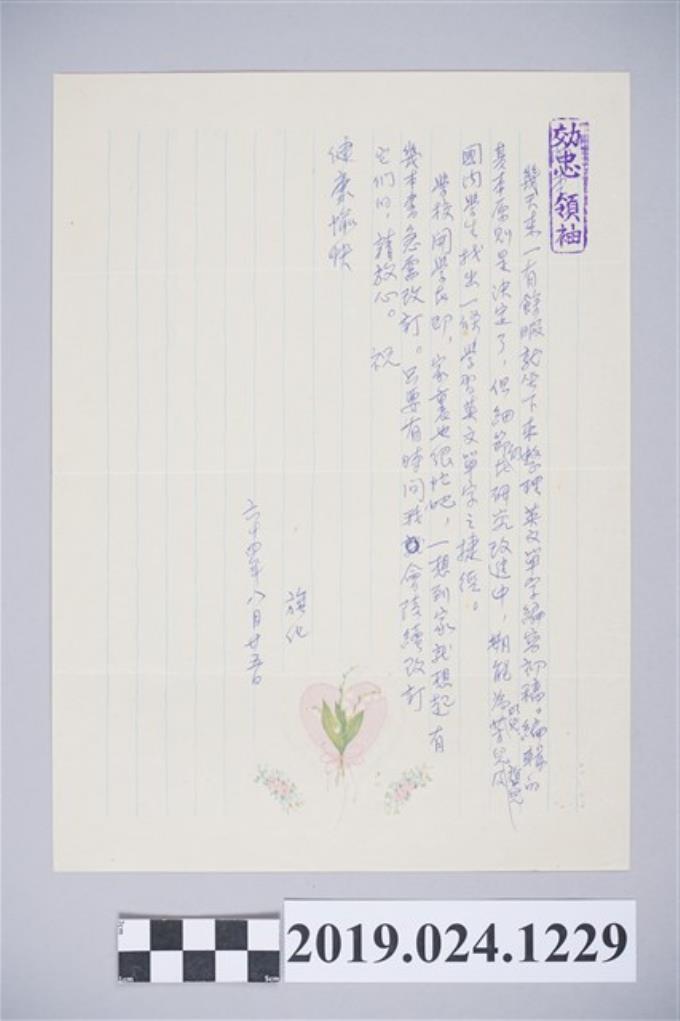 効忠領袖
幾天來一有餘暇就坐下來整理英文單字編寫初稿。編輯的
基本原則是決定了，但細節尚在研究改進中，期能為
國內學生找出一條學習英文單字之捷徑。
學校開學在即，家裏也很忙吧，一想到家就想起有
幾本書急需改訂。只要有時間我會陸續改訂
它們的，請放心。祝
健康愉快
旗化
六十四年八月廿五日
2019.024.1229